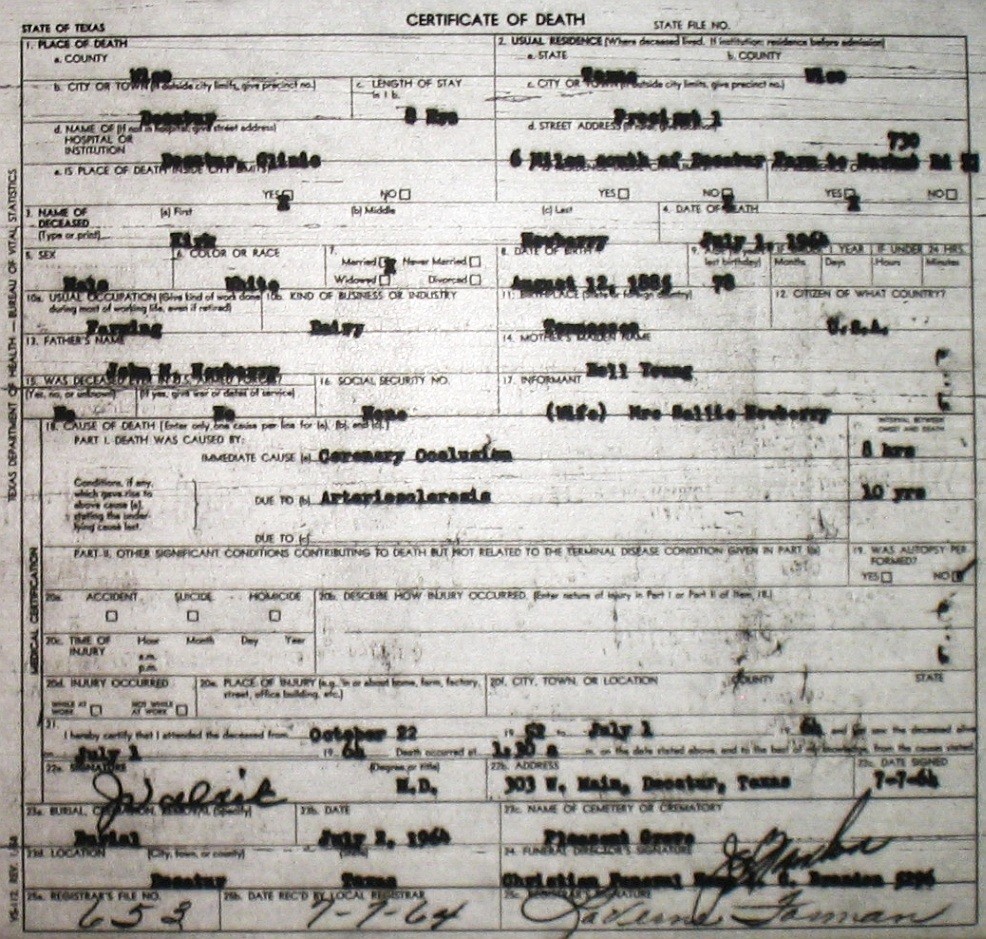 CERTIFICATE OF DEATH
STATE OF TEXAS STATE FILE NO.
1. PLACE OF DEATH
a. COUNTY
Wise
2. USUAL RESIDENCE (Where deceased lived. If institution: residence before admission)
a. STATE b. COUNTY
Texas Wise
b. CITY OR TOWN (If outside city limits, give precinct no.)
Decatur
c. LENGTH OF STAY in 1 b.
8 Hrs
c. CITY OR TOWN (If outside city limits, give precinct no.)
Precinct 1
d. NAME OF (If not in hospital, give street address)
HOSPITAL OR
INSTITUTION
Decatur, Clinic
d. STREET ADDRESS
730
6 Miles south of Decatur Farm to Market Rd
e. IS PLACE OF DEATH INSIDE CITY LIMITS?
YES X NO
YES NO X
YES X NO
3. NAME OF
DECEASED
(Type or print)
(a) First (b) Middle (c) Last
Kirk Newberry
4. DATE OF DEATH
July 1, 1964
5. SEX
Male
6. COLOR OR RACE
White
7.
Married X Never Married
Widowed Divorced
8. DATE OF BIRTH
August 12, 1885
9. last birthday)
78
1 YEAR IF UNDER 24 HRS.
Months Days Hours Minutes
10a. USUAL OCCUPATION (Give kind of work done
during most of working life, even if retired)
Farming
10b. KIND OF BUSINESS OR INDUSTRY
Dairy
11. BIRTHPLACE (State or foreign country)
Tennessee
12. CITIZEN OF WHAT COUNTRY?
U.S.A.
13. FATHER'S NAME
John N. Newberry
14. MOTHER'S MAIDEN NAME
Nell Young
15. WAS DECEASED EVER IN U.S. ARMED FORCES?
(Yes, no, or unknown) (If yes, give war or dates of service)
No No
16. SOCIAL SECURITY NO.
None
17. INFORMANT
(Wife) Mrs Sallie Newberry
18. CAUSE OF DEATH [Enter only one cause per line for (a), (b), and (c).]
PART I. DEATH WAS CAUSED BY:
INTERVAL BETWEEN
ONSET AND DEATH
IMMEDIATE CAUSE (a) Coronary Occlusion 8 hrs
Conditions, if any,
which gave rise to
above cause (a),
stating the under-
lying cause last.
DUE TO (b) Arteriosclerosis 10 yrs
DUE TO (c)
PART II. OTHER SIGNIFICANT CONDITIONS CONTRIBUTING TO DEATH BUT NOT RELATED TO THE TERMINAL DISEASE CONDITION GIVEN IN PART I(a)
19. WAS AUTOPSY PER-
FORMED?
YES NO
20a. ACCIDENT SUICIDE HOMICIDE
20b. DESCRIBE HOW INJURY OCCURRED. (Enter nature of injury in Part I or Part II of item 18.)
20c. TIME OF
INJURY
Hour Month Day Year
a.m.
p.m.
20d. INJURY OCCURRED
WHILE AT
WORK
NOT WHILE
AT WORK
20e. PLACE OF INJURY (e.g., in or about home, farm, factory,
street, office building, etc.)
20f. CITY, TOWN, OR LOCATION COUNTY STATE
21.
I hereby certify that I attended the deceased from October 22 19 62 to July 1 19 64 and last saw the deceased alive
on July 1 19 64 Death occurred at 1.30 a m. on the date stated above, and to the best of my knowledge, from the causes stated.
22a. SIGNATURE (Degree or title)
M.D.
22b. ADDRESS
303 W. Main, Decatur, Texas
22c. DATE SIGNED
7-7-64
23a. BURIAL, CREMATION, REMOVAL (Specify)
Burial
23b. DATE
July 2, 1964
23c. NAME OF CEMETERY OR CREMATORY
Pleasant Grove
23d. LOCATION (City, town, or county) (State)
Decatur Texas
24. FUNERAL DIRECTOR'S SIGNATURE
Christian Funeral
25a. REGISTRAR'S FILE NO.
653
25b. DATE REC'D BY LOCAL REGISTRAR
7-7-64
25c. REGISTRAR'S SIGNATURE
LaVerne Forman
TEXAS DEPARTMENT OF HEALTH — BUREAU OF VITAL STATISTICS
MEDICAL CERTIFICATION